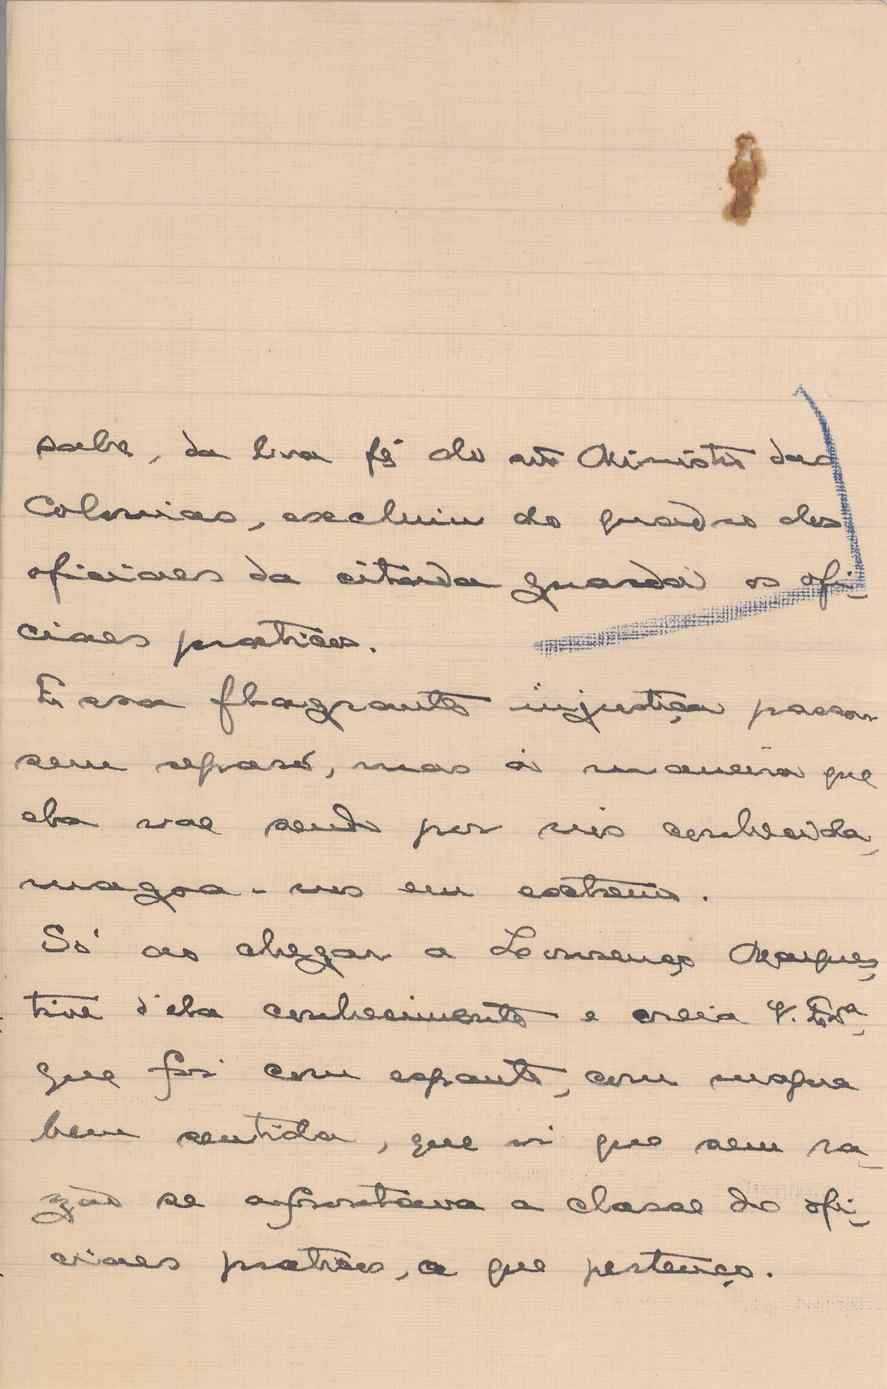 sabe, da boa fé do então Ministro das
Colonias, excluiu do quadro dos
oficiaes da citada guarda os ofi-
ciaes praticos.
Essa flagrante injustiça passou
sem reparo, mas á maneira que
ela vae sendo por nós conhecida,
magoa-nos em extremo.
Só ao chegar a Lourenço Marques,
tive d'ela conhecimento e creia V. Exª,
que foi com espanto, com magua
bem sentida, que vi que sem ra-
zão se afrontava a classe de ofi-
ciaes praticos, a que pertenço.